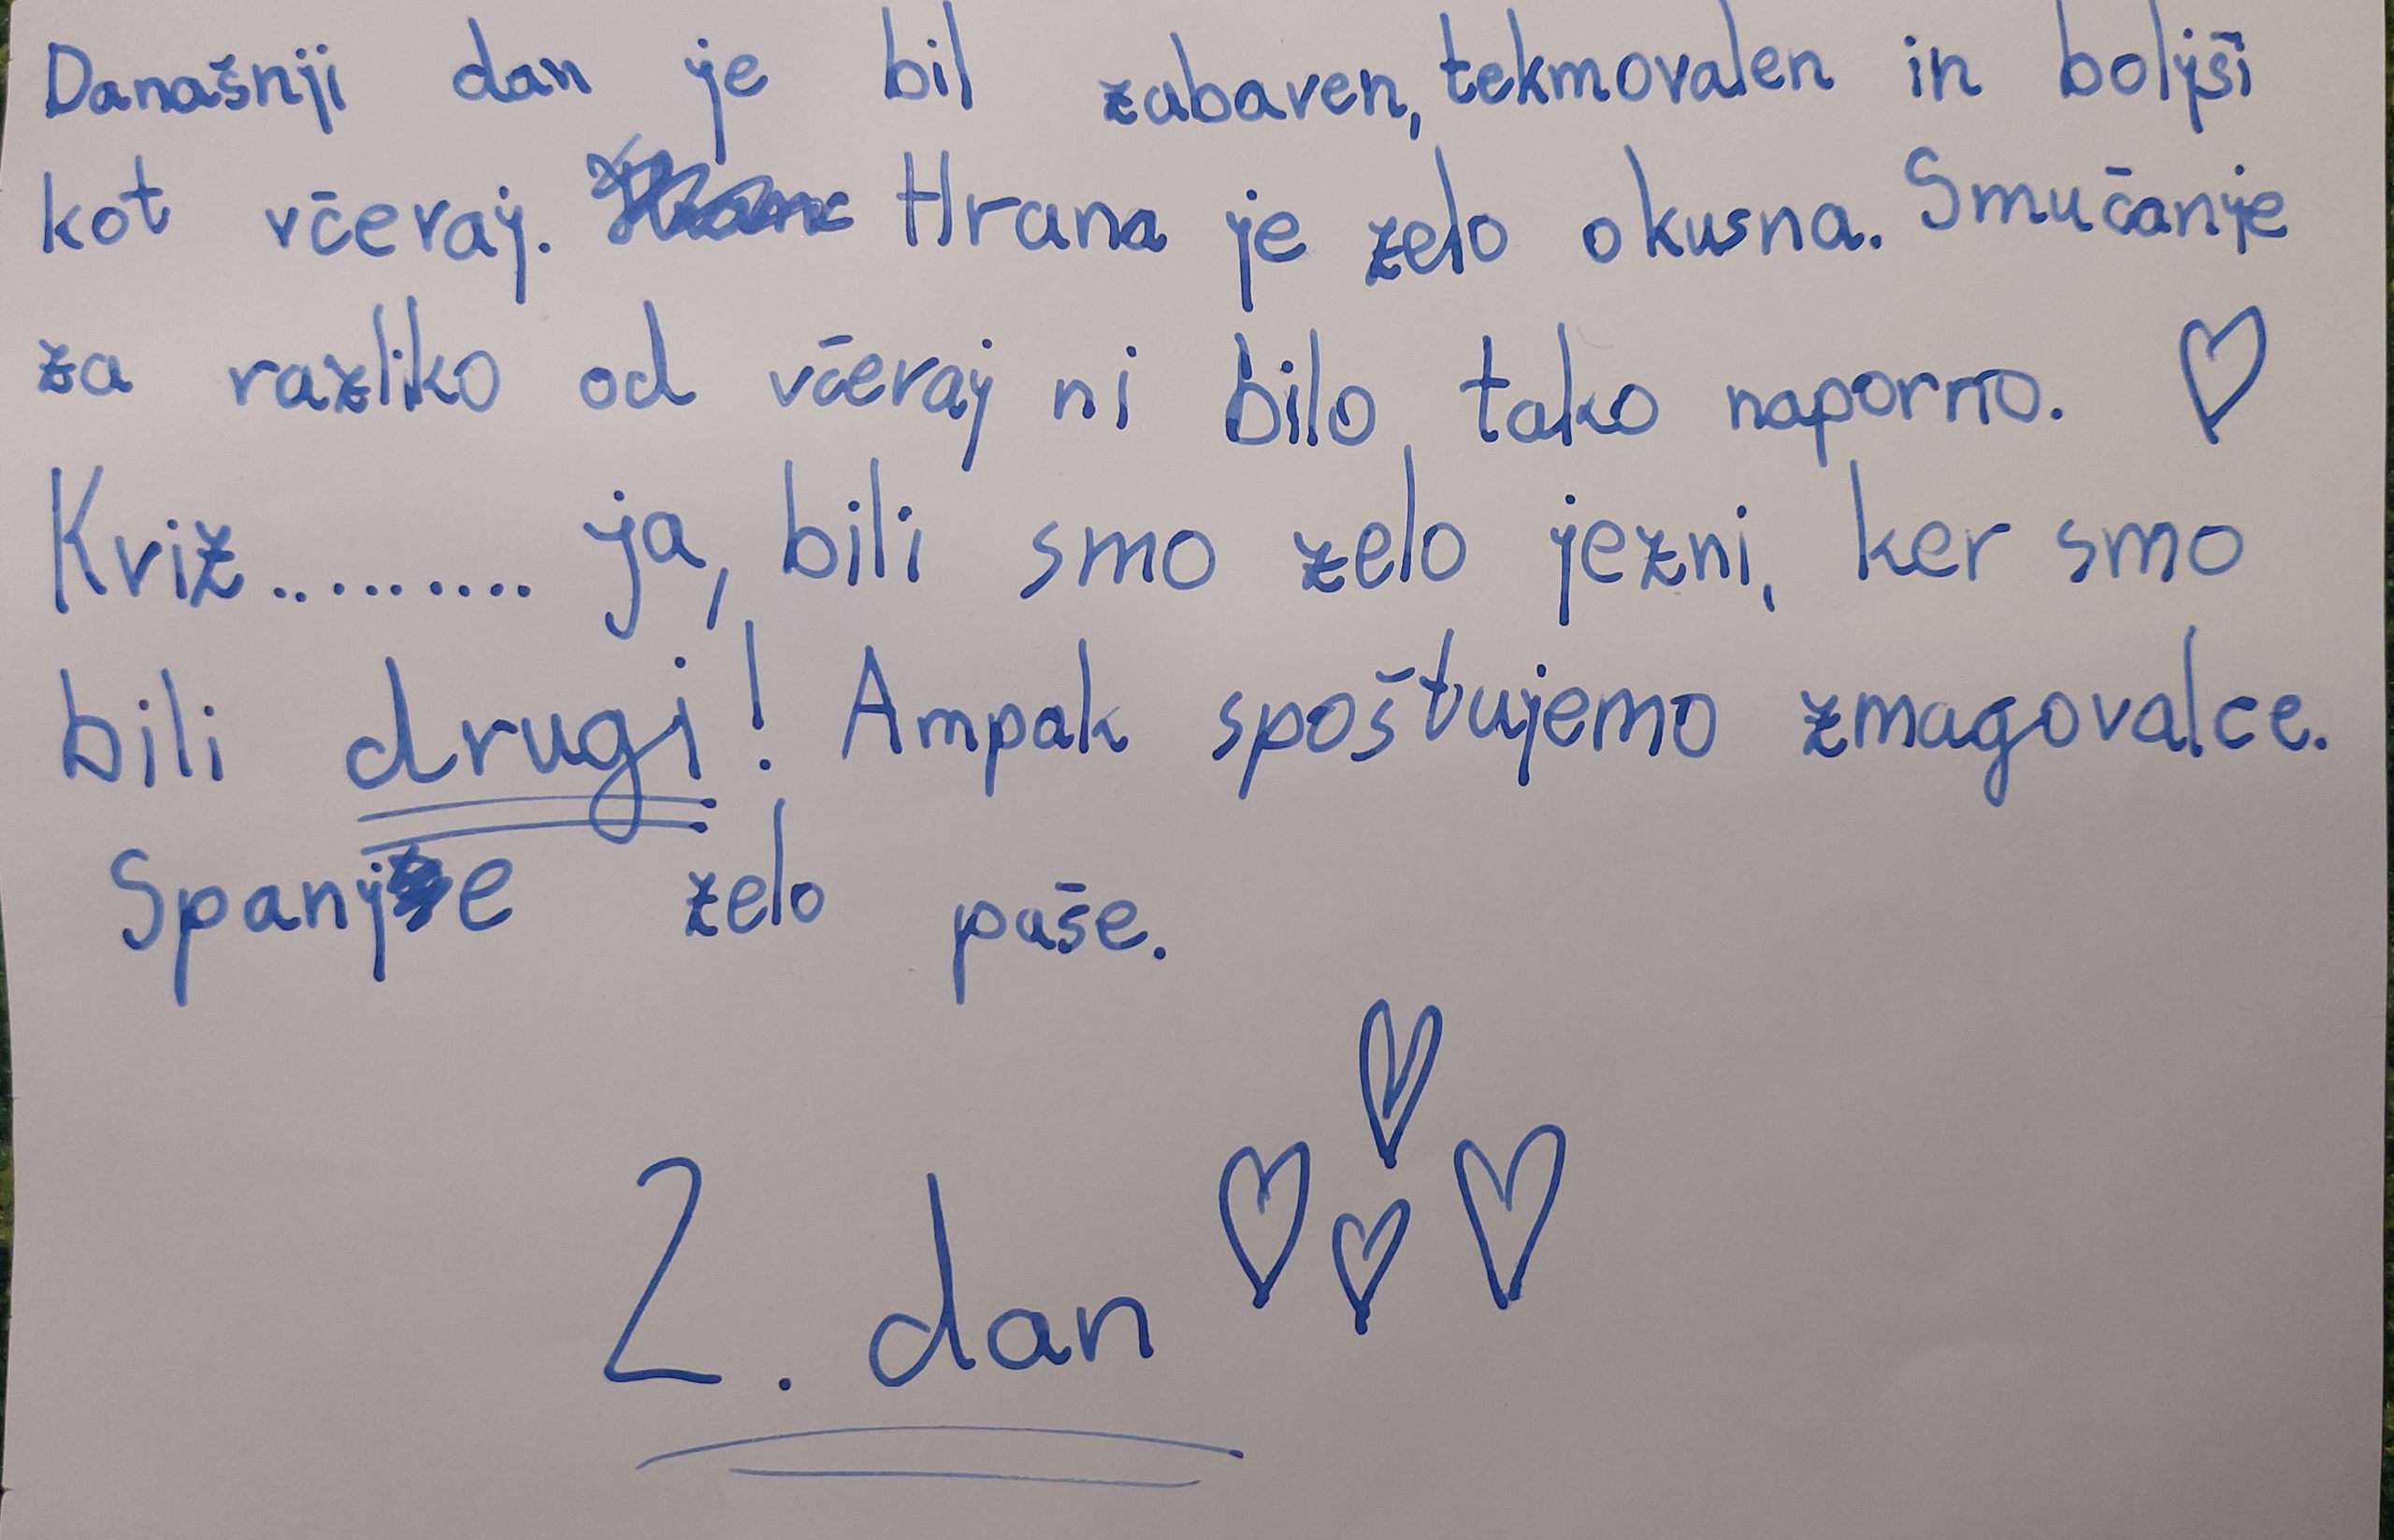 Današnji dan je bil zabaven, tekmovalen in boljši
kot včeraj. Hrana je zelo okusna. Smučanje
za razliko od včeraj ni bilo tako naporno. ♡
Kviz.......... ja, bili smo zelo jezni, ker smo
bili drugi! Ampak spoštujemo zmagovalce.
Spanje zelo paše.
2. dan ♡♡♡♡